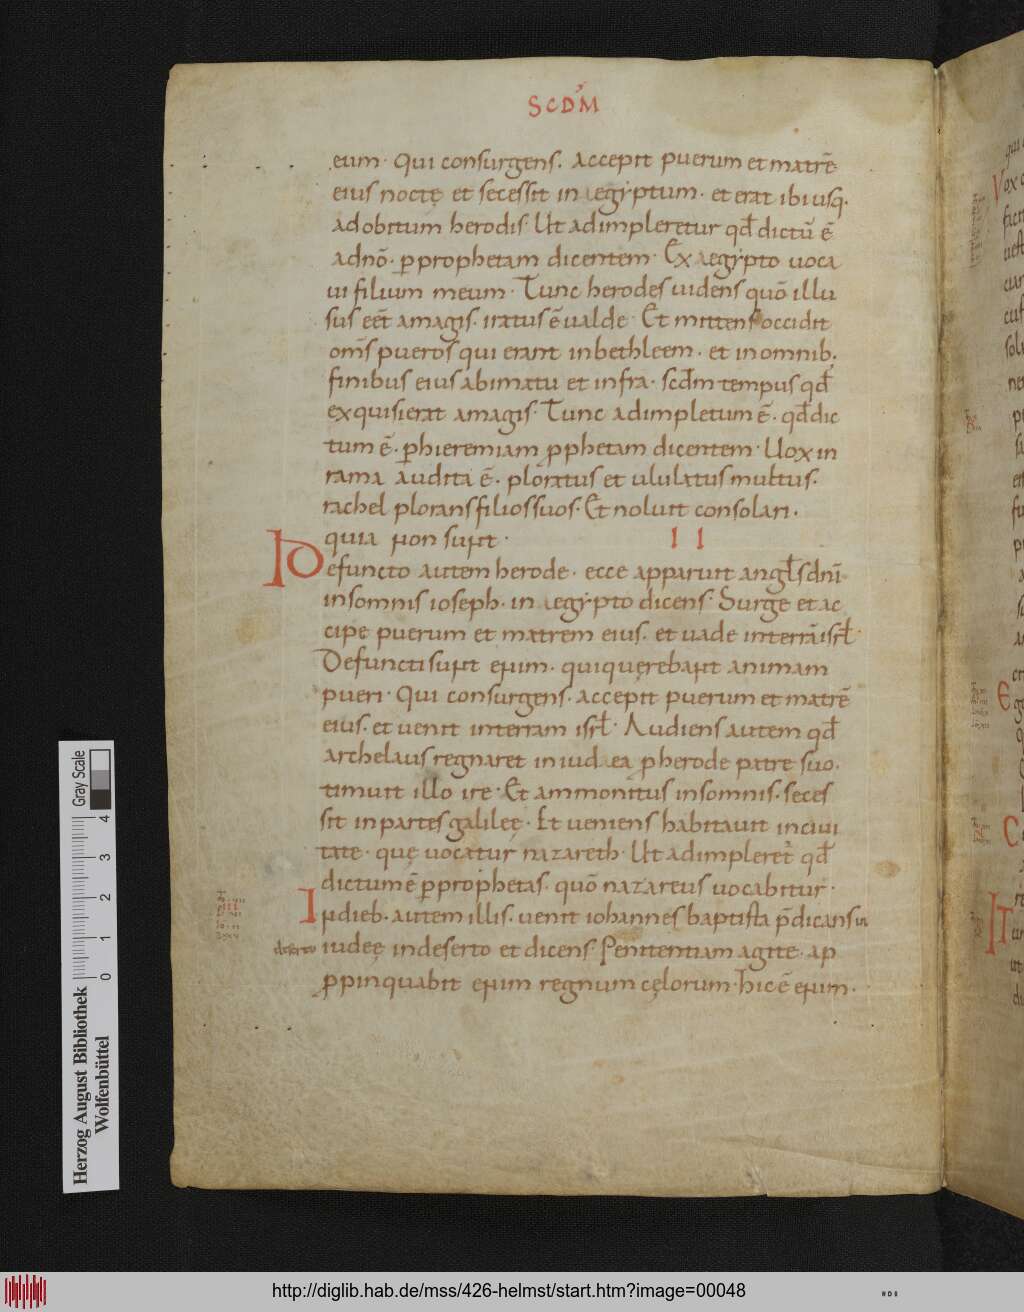 SCDM
eum· Qui consurgens. accepit puerum et matrē
eius noctę et secessit in aegyptum· et erat ibi usq·
ad obitum herodis· Ut adimpleretur qđ dictū ē
a dnō· ꝑ prophetam dicentem· Ex aegypto uoca
ui filium meum· Tunc herodes uidens quō illu
sus eēt a magis· iratus ē ualde· Et mittens occidit
om̄s pueros qui erant in bethleem· et in omnib·
finibus eius a bimatu et infra· scđm tempus qđ
exquisierat a magis· Tunc adimpletum ē· qđ dic
tum ē· ꝑ hieremiam ꝓphetam dicentem· Uox in
rama audita ē· ploratus et ululatus multus·
rachel plorans filios suos· Et noluit consolari·
quia non sunt· II
Defuncto autem herode· ecce apparuit angłs dnī
in somnis ioseph· in aegypto dicens· Surge et ac
cipe puerum et matrem eius· et uade in terrā isrł·
Defuncti sunt enim· qui quęrebant animam
pueri· Qui consurgens· accepit puerum et matrē
eius· et uenit in terram isrł· Audiens autem qđ
archelaus regnaret in iudaea ꝑ herode patre suo·
timuit illo ire· Et ammonitus in somnis· seces
sit in partes galileę· Et ueniens habitauit in ciui
tate· quę uocatur nazareth· Ut adimpleret' qđ
dictum ē ꝑ prophetas· quō nazareus uocabitur·
In dieb· autem illis· uenit iohannes baptista p̄dicans in
deserto iudeę in deserto et dicens Penitentiam agite· ap
ꝓpinquabit enim regnum cęlorum· hic ē enim·
Gray Scale
0 1 2 3 4
Herzog August Bibliothek
Wolfenbüttel
http://diglib.hab.de/mss/426-helmst/start.htm?image=00048